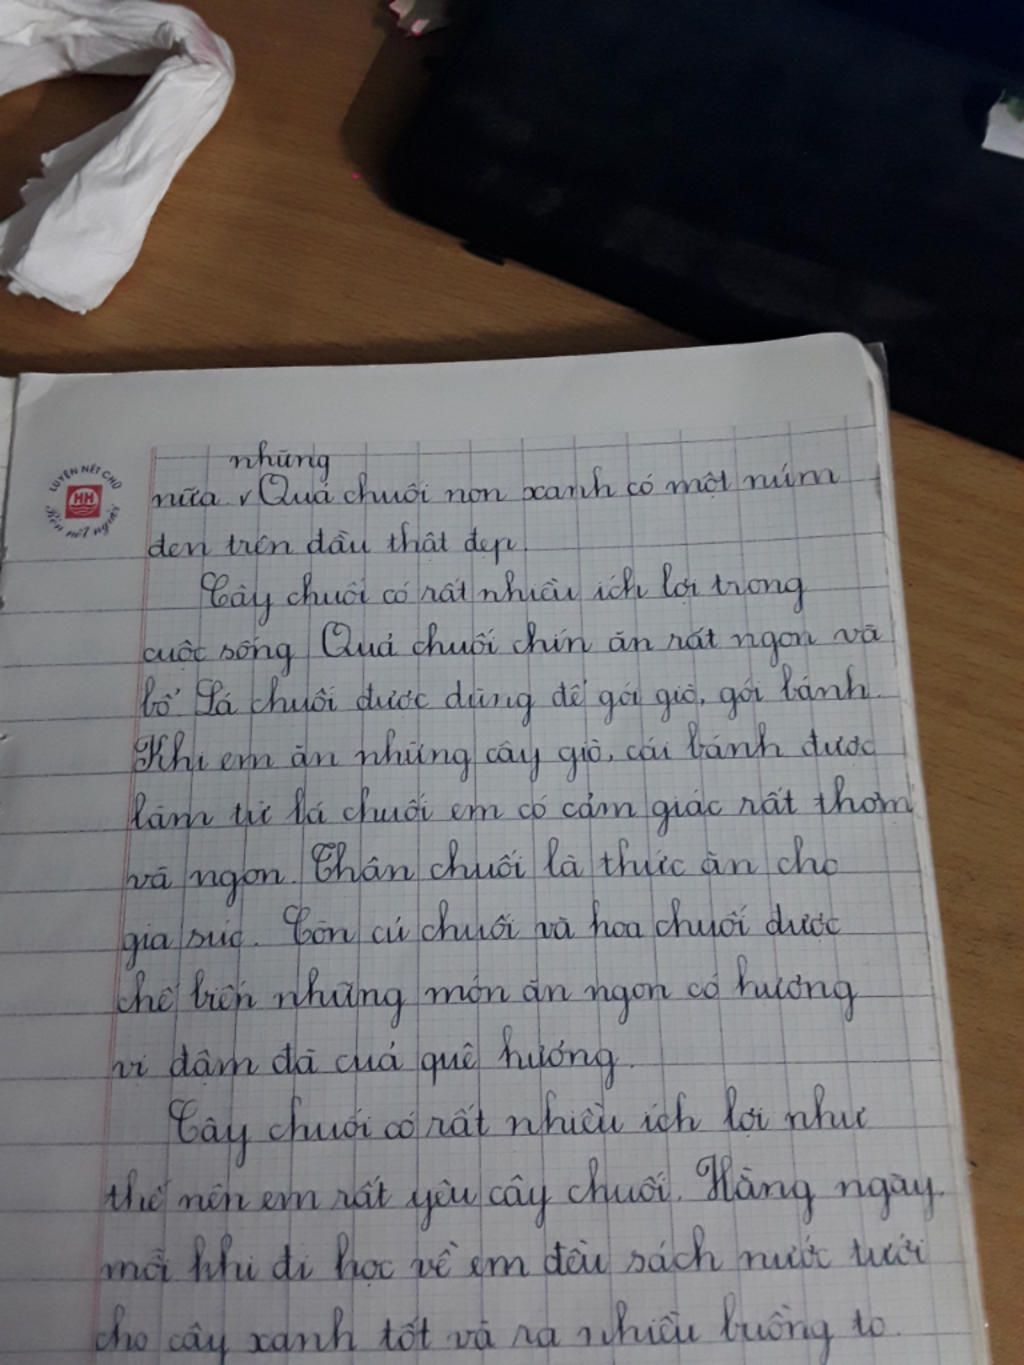 LUYỆN NÉT CHỮ
HH
Rèn nết người
những
nữa v Quả chuối non xanh có một núm
đen trên đầu thật đẹp.
Cây chuối có rất nhiều ích lợi trong
cuộc sống. Quả chuối chín ăn rất ngon và
bổ. Lá chuối được dùng để gói giò, gói bánh.
Khi em ăn những cây giò, cái bánh được
làm từ lá chuối em có cảm giác rất thơm
và ngon. Thân chuối là thức ăn cho
gia súc. Còn củ chuối và hoa chuối được
chế biến những món ăn ngon có hương
vị đậm đà của quê hương.
Cây chuối có rất nhiều ích lợi như
thế nên em rất yêu cây chuối. Hằng ngày.
mỗi khi đi học về em đều sách nước tưới
cho cây xanh tốt và ra nhiều buồng to.